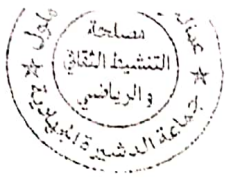 مصلحة
التنشيط الثقافي
و الرياضي
جماعة الدشيرة الجهادية